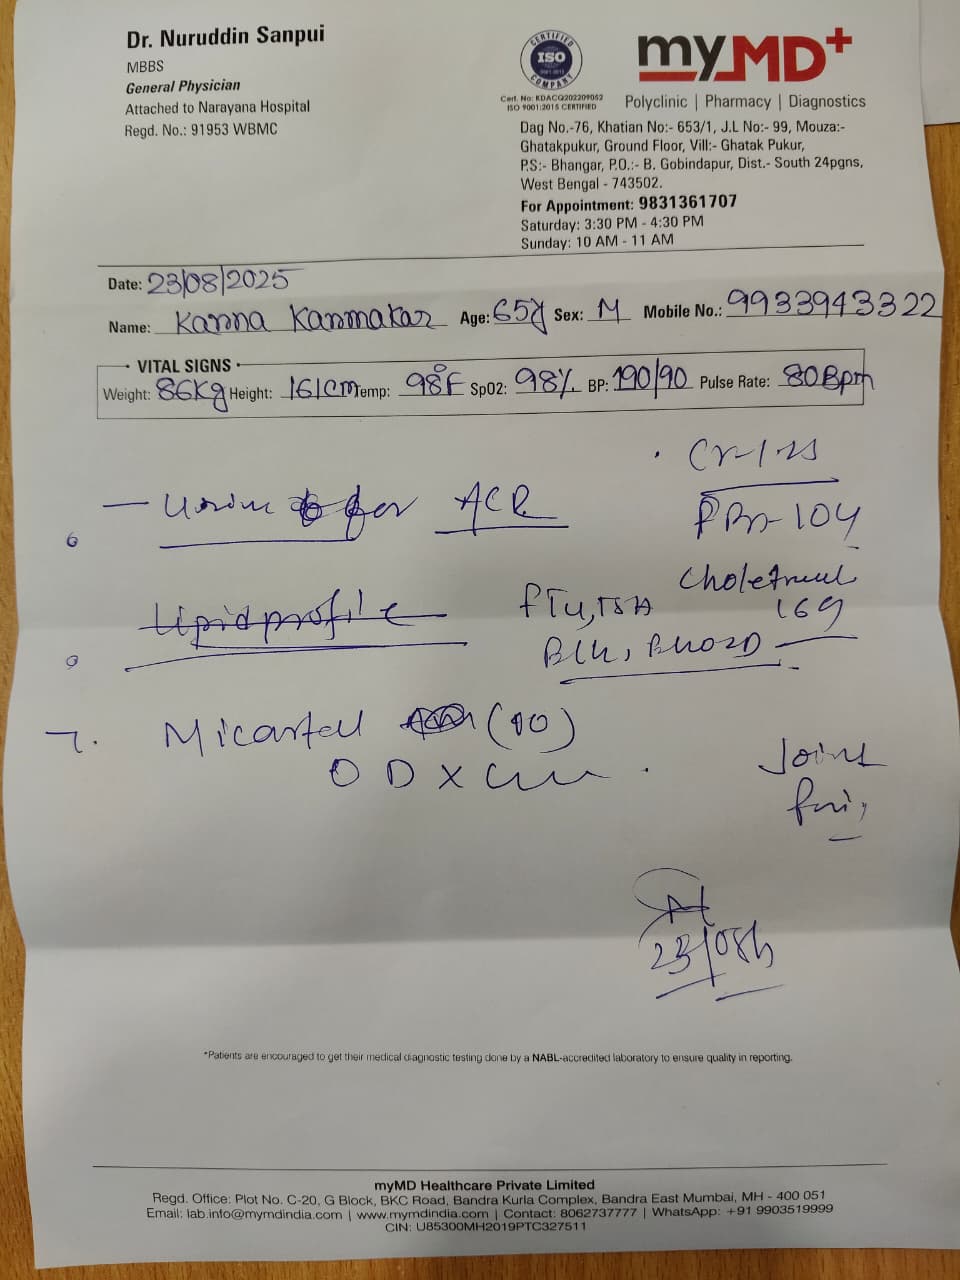 Dr. Nuruddin Sanpui
MBBS
General Physician
Attached to Narayana Hospital
Regd. No.: 91953 WBMC
CERTIFIED
ISO
9001:2015
COMPANY
Cert. No: KDACQ202209052
ISO 9001:2015 CERTIFIED
myMD+
Polyclinic | Pharmacy | Diagnostics
Dag No.-76, Khatian No:- 653/1, J.L No:- 99, Mouza:-
Ghatakpukur, Ground Floor, Vill:- Ghatak Pukur,
P.S:- Bhangar, P.O.:- B. Gobindapur, Dist.- South 24pgns,
West Bengal - 743502.
For Appointment: 9831361707
Saturday: 3:30 PM - 4:30 PM
Sunday: 10 AM - 11 AM
Date: 23/08/2025
Name: Kanna Kanmakar Age: 65y Sex: M Mobile No.: 9933943322
VITAL SIGNS
Weight: 86Kg Height: 161cm Temp: 98°F SpO2: 98% BP: 190/90 Pulse Rate: 80Bpm
- Urine for ACR
Lipid profile
169
(10)
O D X
Joint
23/08/
*Patients are encouraged to get their medical diagnostic testing done by a NABL-accredited laboratory to ensure quality in reporting.
myMD Healthcare Private Limited
Regd. Office: Plot No. C-20, G Block, BKC Road, Bandra Kurla Complex, Bandra East Mumbai, MH - 400 051
Email: lab.info@mymdindia.com | www.mymdindia.com | Contact: 8062737777 | WhatsApp: +91 9903519999
CIN: U85300MH2019PTC327511